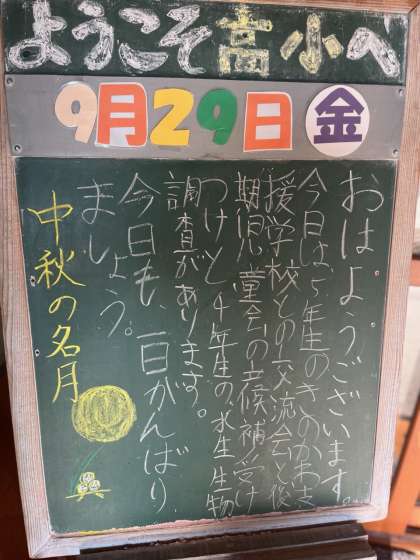 ようこそ高小へ
9月29日 金
おはようございます。
今日は、5年生のきのかわ支
援学校との交流会と後
期児童会の立候補受け
つけと4年生の水生生物
調査があります。
今日も、一日がんばり
ましょう。
中秋の名月